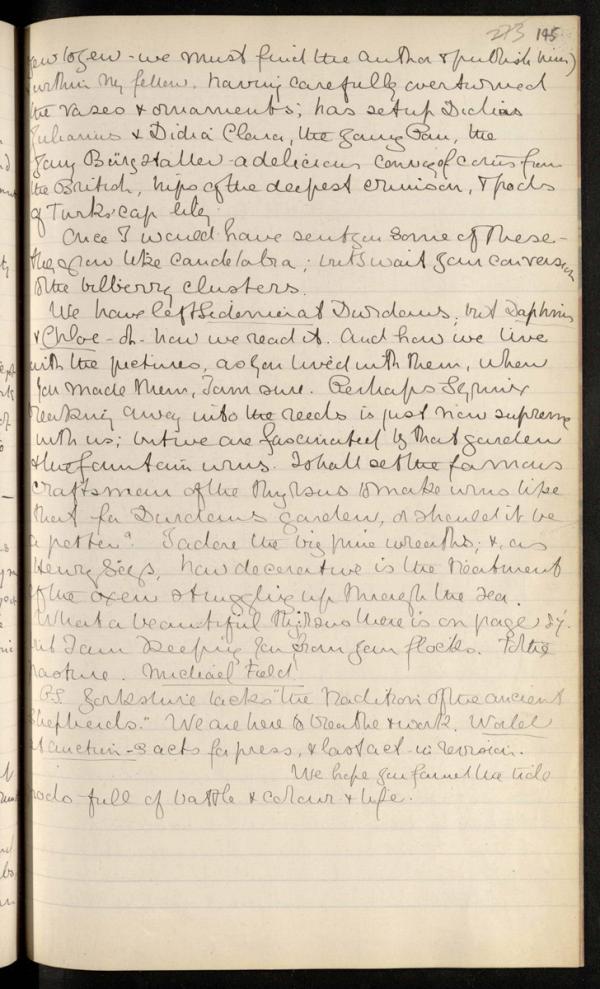 273 145
we must find the author & publish him)
within my fellow. Having carefully overturned
the vases & ornaments; has set up Didius
Julianus & Didia Clara, the young Pan, the
young Bürgstaller - a delicious convoy of coins from
the British, hips of the deepest crimson, & pods
of Turk's cap lily.
Once I would have sent you some of these -
they glow like candelabra; but I wait your conversion
to the bilberry clusters.
We have left at Durdans; but Daphnis
& Chloe - oh - how we read it. And how we live
with the pictures, as you lived with them, when
you made them, I am sure. Perhaps Syrinx
breaking away into the reeds is just now supreme
with us; but we are fascinated by that garden
& the fountain urns. I shall set the famous
craftsman of the Thyrsus to make urns like
that for Durdans garden, or should it be
a potter? I adore the big pine wreaths; &, as
Henry says, how decorative is the treatment
of the oxen struggling up through the sea.
What a beautiful Thyrsus there is on page 87.
but I am keeping you from your flocks. To the
pasture. Michael Field
P.S. Yorkshire lacks "the tradition of the ancient
shepherds." We are here to breathe & work. World
at auction - 3 acts for press, & last act in revision.
We hope you found the tide
full of battle & colour & life.